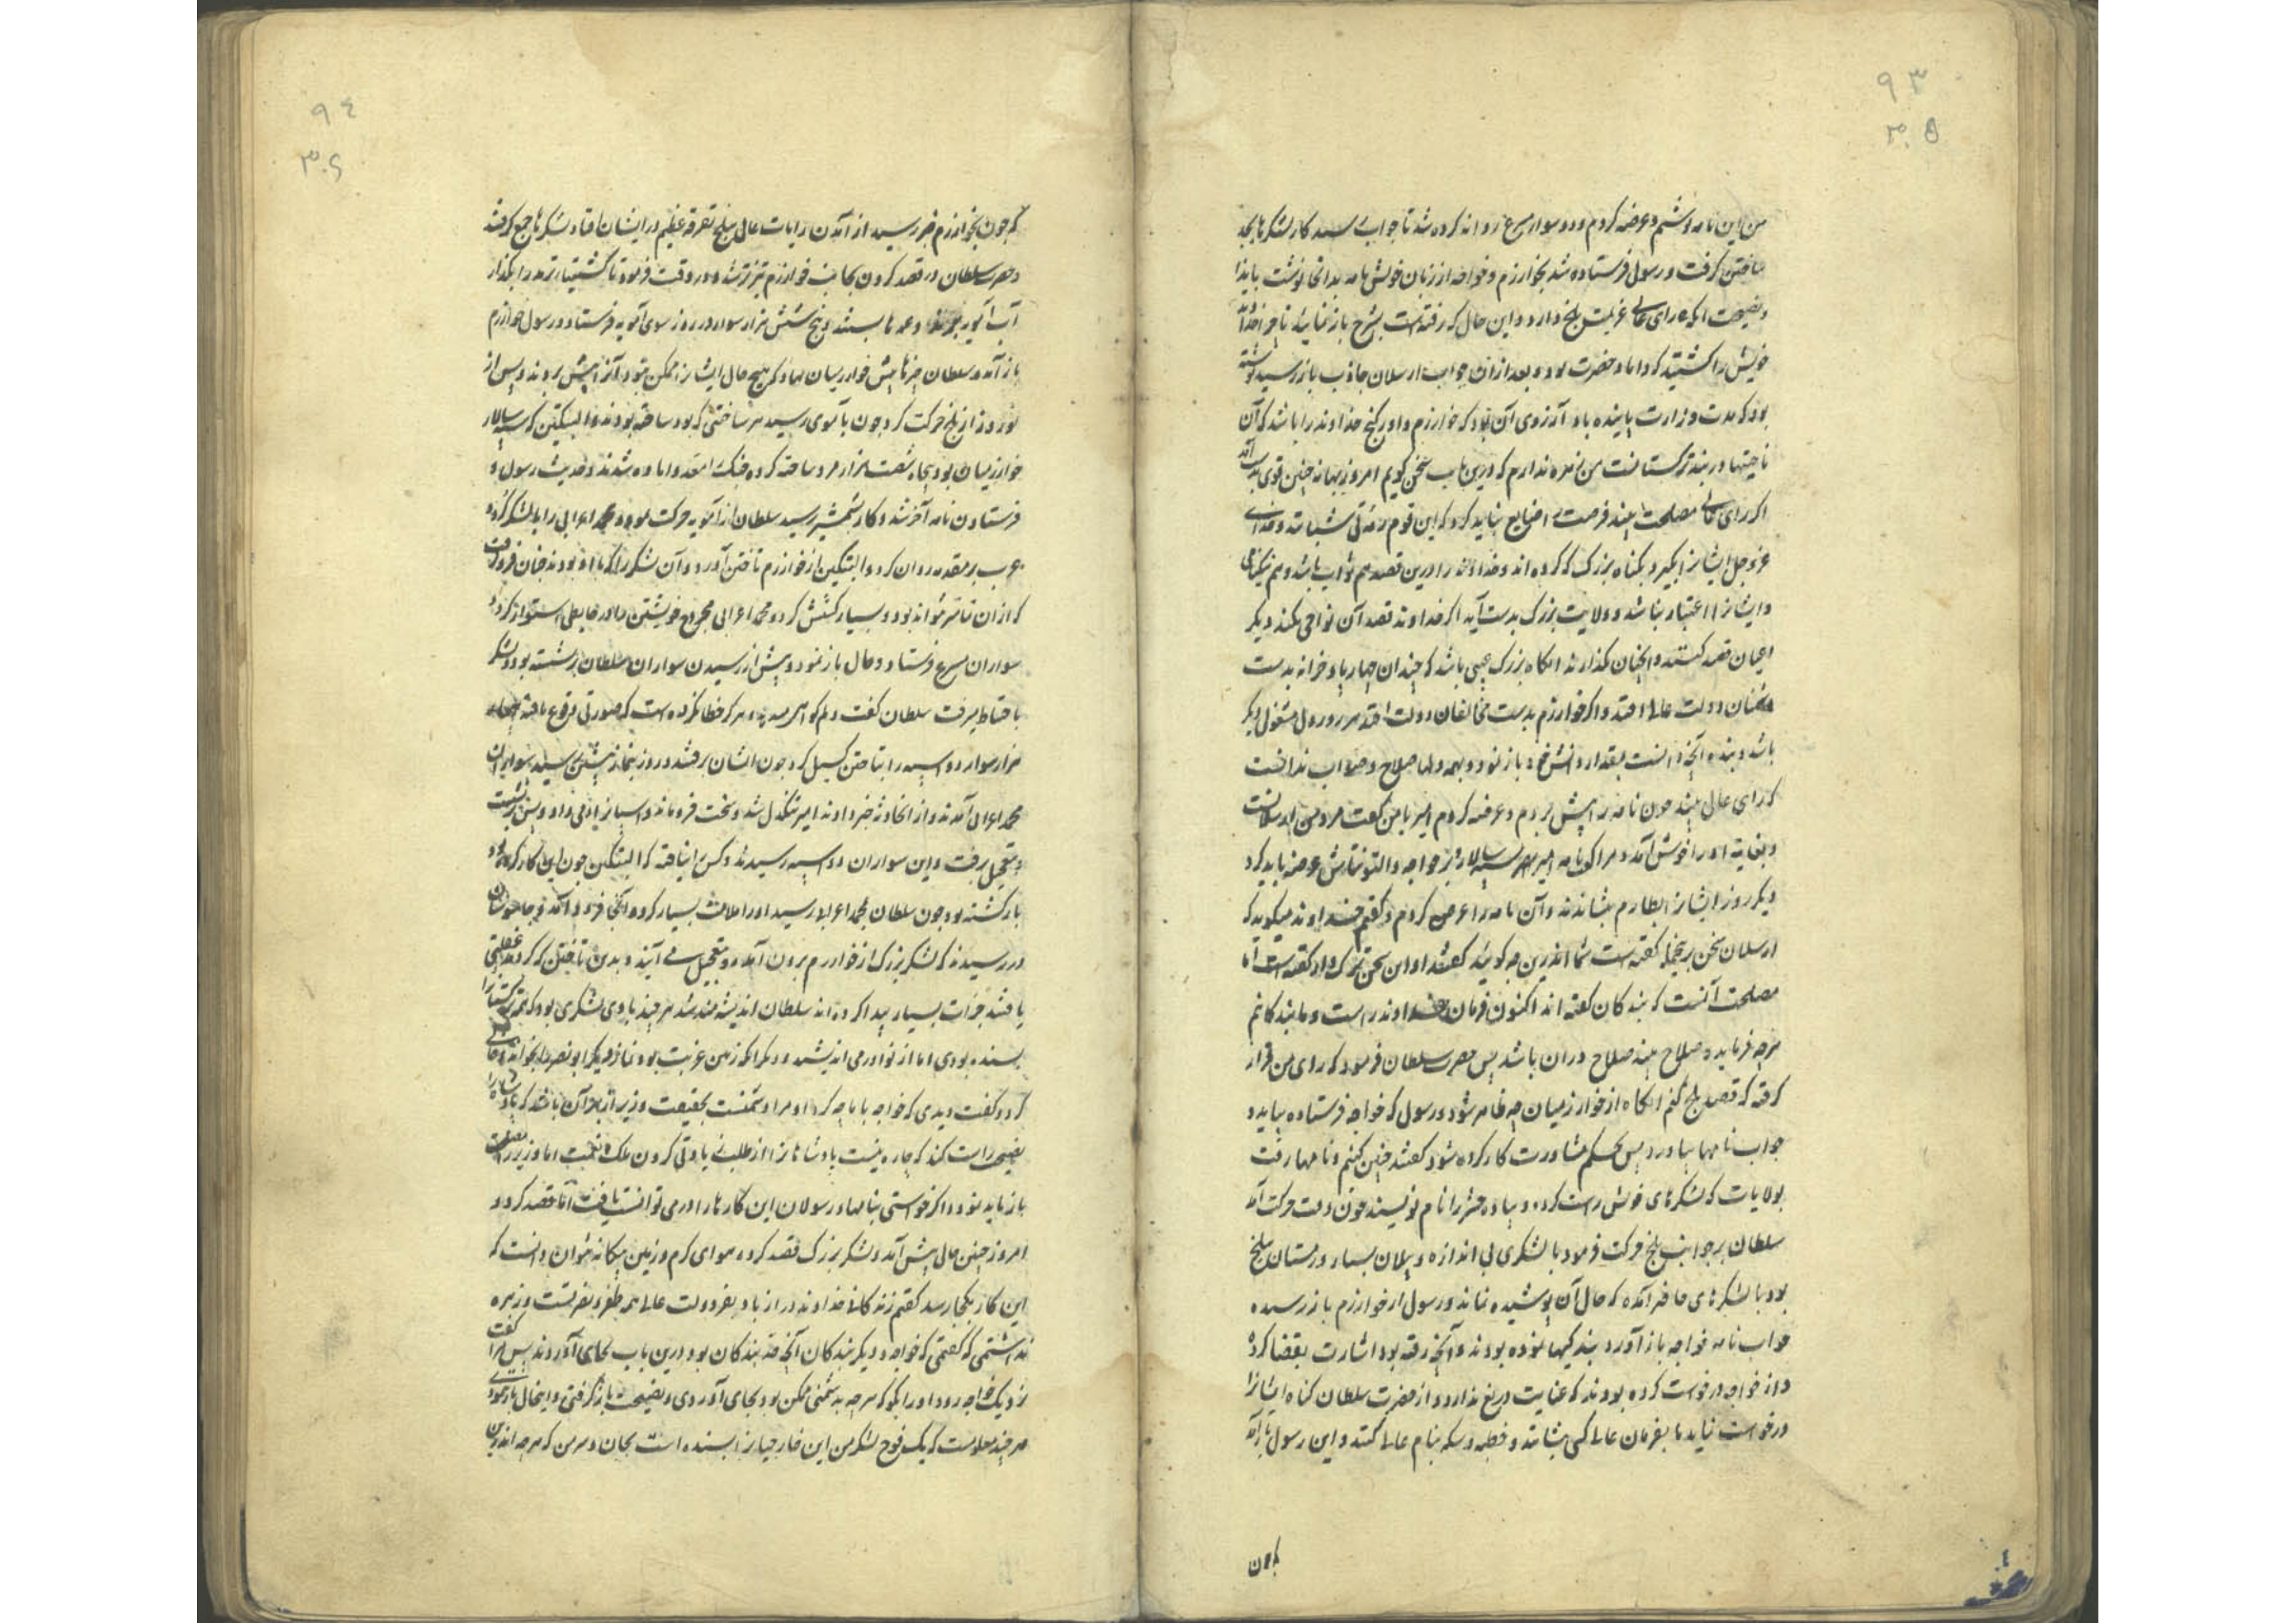 ۹۳
۳۰۵
من این نامه نوشتم و عرضه کردم و دو سوار مسرع روانه کرده شد تا جواب رسید کار لشکرها بجد
ساختن گرفت و رسول فرستاده شد بخوارزم و خواجه از زبان خویش نامه بدانجا نوشت با پندها
و نصیحت که رای عالی عزیمت بلخ دارد و این حال که رفته است بشرح باز نمائید تا چرا خداوند
خویش را کشتید که داماد حضرت بود و بعد از آن جواب ارسلان جاذب باز رسید نوشته
بود که مدت وزارت پاینده باد آرزوی آن بلاد که خوارزم و اورکنج خداوند را باشد که آن
ناحیتها دربند ترکستانست من زهره ندارم که درین باب سخن گویم امروز بهانه چنین قوی بدست آمد
اگر رای عالی مصلحت بیند فرصت را ضایع نباید کرد که این قوم رمه بی شبانند و خدای
عزوجل ایشانرا بگیرد بگناه بزرگ که کرده اند و خداوند را درین قصد هم ثواب باشد و هم نیکنامی
و ایشانرا اعتبار نباشد و ولایت بزرگ بدست آید اگر خداوند قصد آن نواحی نکند دیگر
اعیان قصد کنند و آنچنان نگذارند آنگاه بزرگ عیبی باشد که چندان چهارپا و خزانه بدست
دشمنان دولت عالی افتد و اگر خوارزم بدست مخالفان دولت افتد هر روز دل مشغولی دیگر
باشد و بنده آنچه دانست بمقدار دانش خود باز نمود و بهمه وقتها صلاح و صواب بدانست
که رای عالی بیند چون نامه را پیش بردم و عرضه کردم امیر با من گفت مرد من ارسلانست
و بغایت او را خوش آمد و مرا گفت نامه امیر نصر سپه سالار و نیز خواجه و التونتاش عرضه باید کرد
دیگر روز ایشانرا بطارم بنشاندند و آن نامه را عرض کردم و گفتم خداوند میگوید که
ارسلان سخن برینجمله گفته است شما اندرین چه گوئید گفتند او این سخن ترک وار گفته است اما
مصلحت آنست که بندگان گفته اند اکنون فرمان خداوند راست و ما بندگانیم
هرچه فرماید و صلاح بیند صلاح در آن باشد پس حضرت سلطان فرمود که رای من قرار
گرفته که قصد بلخ کنم آنگاه از خوارزمیان چه ظاهر شود و رسول که خواجه فرستاده بیاید و
جواب نامها بیاورد پس بحکم مشاورت کار کرده شود گفتند چنین کنیم و نامها رفت
بولایات که لشکرهای خویش راست کرده و پیاده حشر را نام نویسند چون وقت حرکت آمد
سلطان بر جانب بلخ حرکت فرمود با لشکری بی اندازه و پیلان بسیار و زمستان ببلخ
بود با لشکرهای حاضر آمده که حال آن پوشیده نماند و رسول از خوارزم باز رسیده
جواب نامه خواجه باز آورد بندگیها نموده بودند و آنچه رفته بود اشارت بقضا کرده
و از خواجه درخواست کرده بودند که عنایت دریغ ندارد و از حضرت سلطان گناه ایشانرا
درخواست نماید تا بفرمان عالی کسی بنشانند و خطبه و سکه بنام عالی کنند و این رسول باز آمد
که چون
۹۴
۳۰۶
که چون بخوارزم خبر رسید از آمدن رایات عالی ببلخ تفرقه عظیم در ایشان افتاد لشکرها جمع کردند
و حضرت سلطان در قصد کردن بجانب خوارزم تیزتر شد و در وقت فرمود تا کشتیها ترمد را بگذار
آب آمویه بردند و عمدها بستند و پنج شش هزار سوار در روز سوی آمویه فرستاد و رسول خوارزم
باز آمد و سلطان چیزها پیش خوارزمیان نهاد که هیچ حال ایشانرا ممکن نبود آنرا پیش بردند و پس از
نوروز از بلخ حرکت کرد چون بآموی رسید هر ساختنی که بود ساخته بودند و البتکین که سپه سالار
خوارزمیان بود پنجاه شصت هزار مرد ساخته کرده جنگ را معد و آماده شدند و حدیث رسول و
فرستادن نامه آخر شد و کار بشمشیر رسید سلطان از آمویه حرکت نمود و محمد اعرابی را با لشکر کرد و
عرب بر مقدمه روان کرد و البتکین از خوارزم تاختن آورد و آن لشکر را که با او بودند چنان فروگرفت
که از آن تمامتر نتواند بود و بسیار کشش کرد و محمد اعرابی مجروح خویشتن را در رباطی استوار کرد و
سواران مسرع فرستاد و حال باز نمود و پیش از رسیدن سواران سلطان برنشسته بود و لشکر
باحتیاط میرفت سلطان گفت دلم گواهی میدهد و هرگز خطا نکرده است که صورتی وقوع یافته پنجاه
هزار سوار دو اسپه را بتاختن گسیل کرد چون ایشان برفتند و روز بنماز پیشین رسید سواران
محمد اعرابی آمدند و از آن حادثه خبر دادند امیر تنگدل شد و سخت فروماند و اسپانرا آب داد و پس برنشست
و بتعجیل برفت و این سواران دو اسپه رسیدند و کس را نیافتند که البتکین چون این کار کرده بود
بازگشته بود چون سلطان بمحمد اعرابی رسید او را ملامت بسیار کرد و آنجا فرود آمد و جاسوسان
در رسیدند که لشکر بزرگ از خوارزم برون آمده و بتعجیل می آیند و بدین تاختن که کردند غفلتی
یافتند جرأت بسیار پیدا کرده اند سلطان اندیشه مند شد هرچند با وی لشکری بود که همه ترکستانرا
بسنده بودی اما از نوادر می اندیشید و دیگر آنکه زمین غربت بود نماز دیگر ابونصر را بخواند و خالی
کرد و گفت دیدی که خواجه با ما چه کرد او مرا دشمنست بحقیقت وزیر از بهر آن باشد که پادشاه را
نصیحت راست کند که چاره نیست پادشاهانرا از طلب زیادتی کردن ملک و نعمت اما وزیر راست
باز باید نمود و اگر خواستی بنامها و رسولان این کارها را درمی توانست یافت اما قصد کرد و
امروز چنین حالی پیش آمد و لشکر بزرگ قصد کرده هوای گرم و زمین بیگانه نتوان دانست که
این کار بکجا رسد گفتم زندگانی خداوند دراز باد بفر دولت عالی همه ظفر و نصرتست و زهره
نداشتمی که گفتمی که خواجه و دیگر بندگان آنچه حد بندگان بود درین باب بجای آوردند پس مرا گفت
نزدیک خواجه رو و او را بگو که هرچه بدشمنی ممکن بود بجای آوردی و نصیحت باز گرفتی و اینحال باز نمودی
هرچند معلومست که یک فوج لشکر من این خارجیانرا بسنده است بجان و سر من که هرچه اندرین